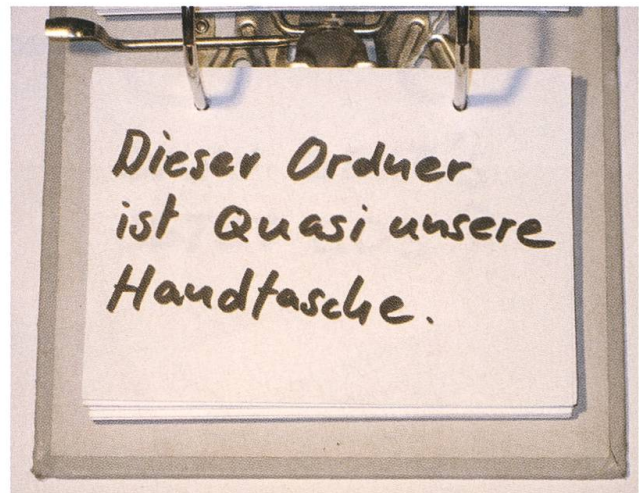 Dieser Ordner
ist Quasi unsere
Handtasche.